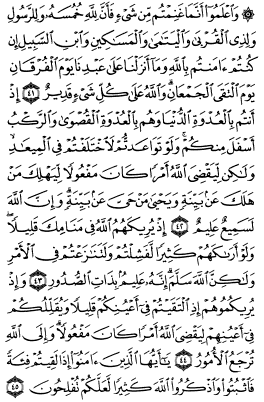 ۞ وَٱعْلَمُوٓا۟ أَنَّمَا غَنِمْتُم مِّن شَىْءٍ فَأَنَّ لِلَّهِ خُمُسَهُۥ وَلِلرَّسُولِ
وَلِذِى ٱلْقُرْبَىٰ وَٱلْيَتَـٰمَىٰ وَٱلْمَسَـٰكِينِ وَٱبْنِ ٱلسَّبِيلِ إِن
كُنتُمْ ءَامَنتُم بِٱللَّهِ وَمَآ أَنزَلْنَا عَلَىٰ عَبْدِنَا يَوْمَ ٱلْفُرْقَانِ
يَوْمَ ٱلْتَقَى ٱلْجَمْعَانِ ۗ وَٱللَّهُ عَلَىٰ كُلِّ شَىْءٍ قَدِيرٌ ٤١ إِذْ
أَنتُم بِٱلْعُدْوَةِ ٱلدُّنْيَا وَهُم بِٱلْعُدْوَةِ ٱلْقُصْوَىٰ وَٱلرَّكْبُ
أَسْفَلَ مِنكُمْ ۚ وَلَوْ تَوَاعَدتُّمْ لَٱخْتَلَفْتُمْ فِى ٱلْمِيعَـٰدِ ۙ
وَلَـٰكِن لِّيَقْضِىَ ٱللَّهُ أَمْرًا كَانَ مَفْعُولًا لِّيَهْلِكَ مَنْ
هَلَكَ عَنۢ بَيِّنَةٍ وَيَحْيَىٰ مَنْ حَىَّ عَنۢ بَيِّنَةٍ ۗ وَإِنَّ ٱللَّهَ
لَسَمِيعٌ عَلِيمٌ ٤٢ إِذْ يُرِيكَهُمُ ٱللَّهُ فِى مَنَامِكَ قَلِيلًا ۖ
وَلَوْ أَرَىٰكَهُمْ كَثِيرًا لَّفَشِلْتُمْ وَلَتَنَـٰزَعْتُمْ فِى ٱلْأَمْرِ
وَلَـٰكِنَّ ٱللَّهَ سَلَّمَ ۗ إِنَّهُۥ عَلِيمٌۢ بِذَاتِ ٱلصُّدُورِ ٤٣ وَإِذْ
يُرِيكُمُوهُمْ إِذِ ٱلْتَقَيْتُمْ فِىٓ أَعْيُنِكُمْ قَلِيلًا وَيُقَلِّلُكُمْ
فِىٓ أَعْيُنِهِمْ لِيَقْضِىَ ٱللَّهُ أَمْرًا كَانَ مَفْعُولًا ۗ وَإِلَى ٱللَّهِ
تُرْجَعُ ٱلْأُمُورُ ٤٤ يَـٰٓأَيُّهَا ٱلَّذِينَ ءَامَنُوٓا۟ إِذَا لَقِيتُمْ فِئَةً
فَٱثْبُتُوا۟ وَٱذْكُرُوا۟ ٱللَّهَ كَثِيرًا لَّعَلَّكُمْ تُفْلِحُونَ ٤٥